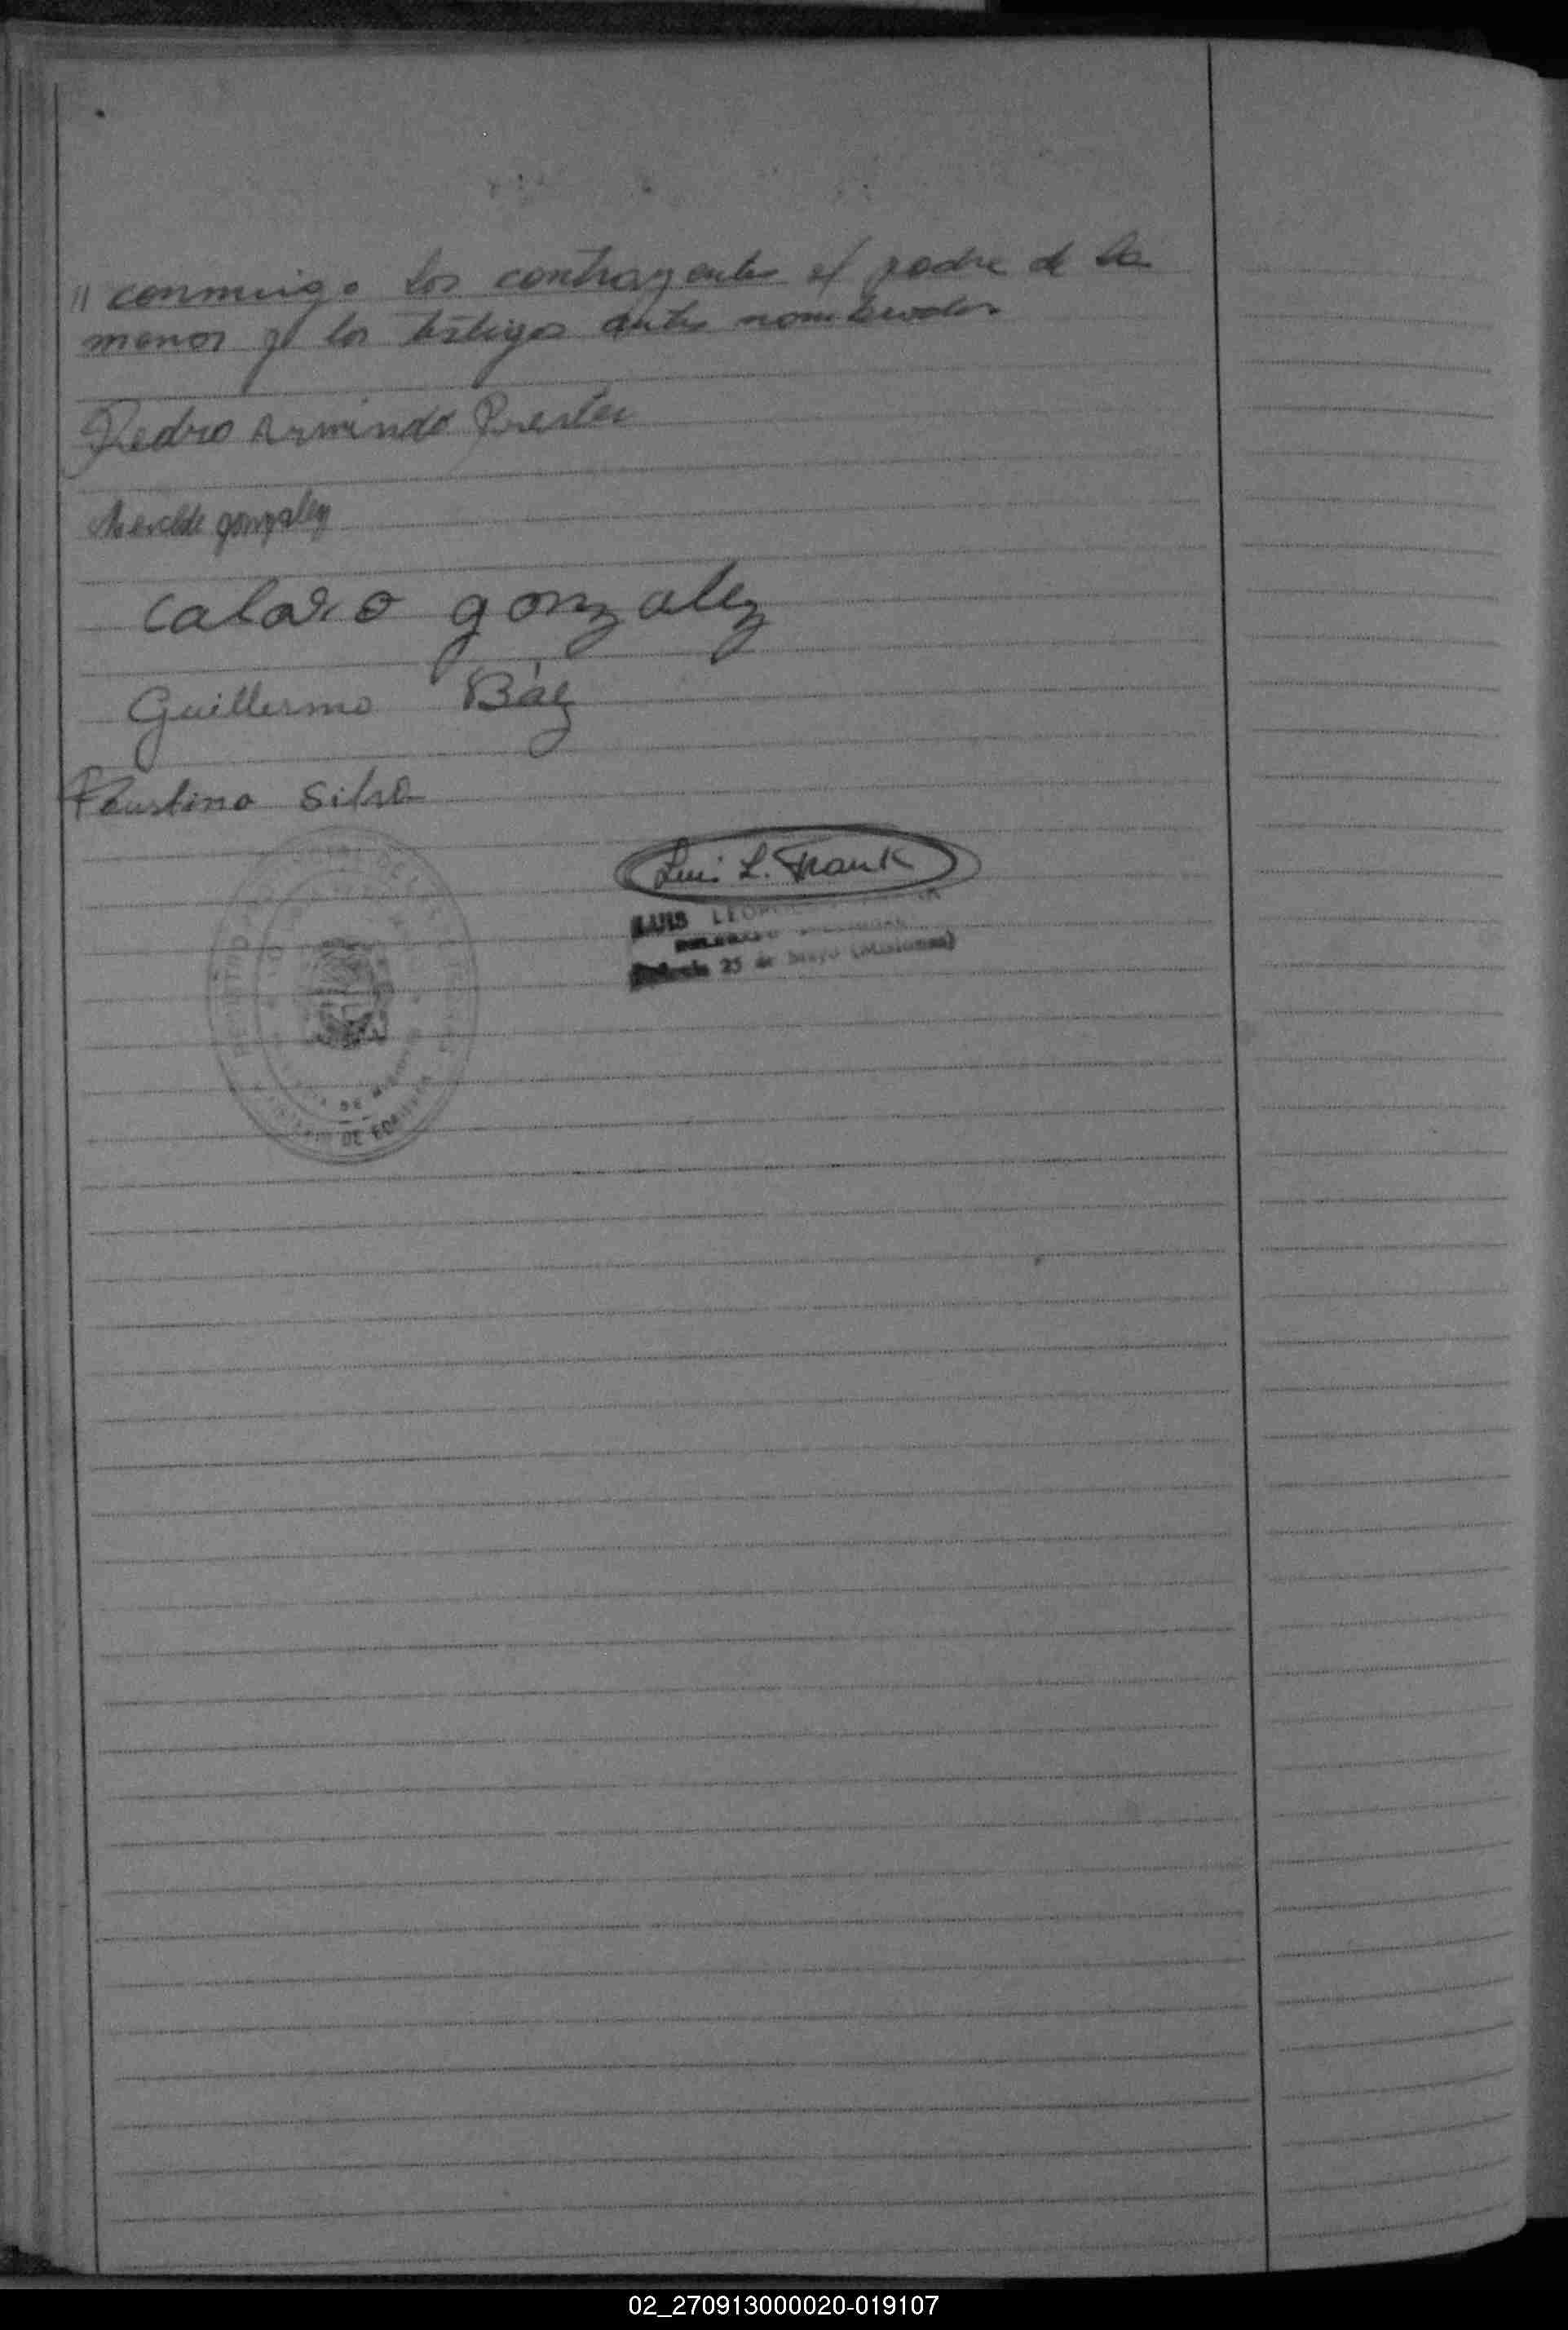 " conmigo los contrayentes el padre de la
menor y los testigos antes nombrados
Pedro Armindo Prestes
gonzalez
Calaro gonzalez
Guillermo Báez
Faustino Silva
Luis L. Frank
LUIS LEOPOLDO
25 de Mayo (Misiones)
DE
DE
02_270913000020-019107